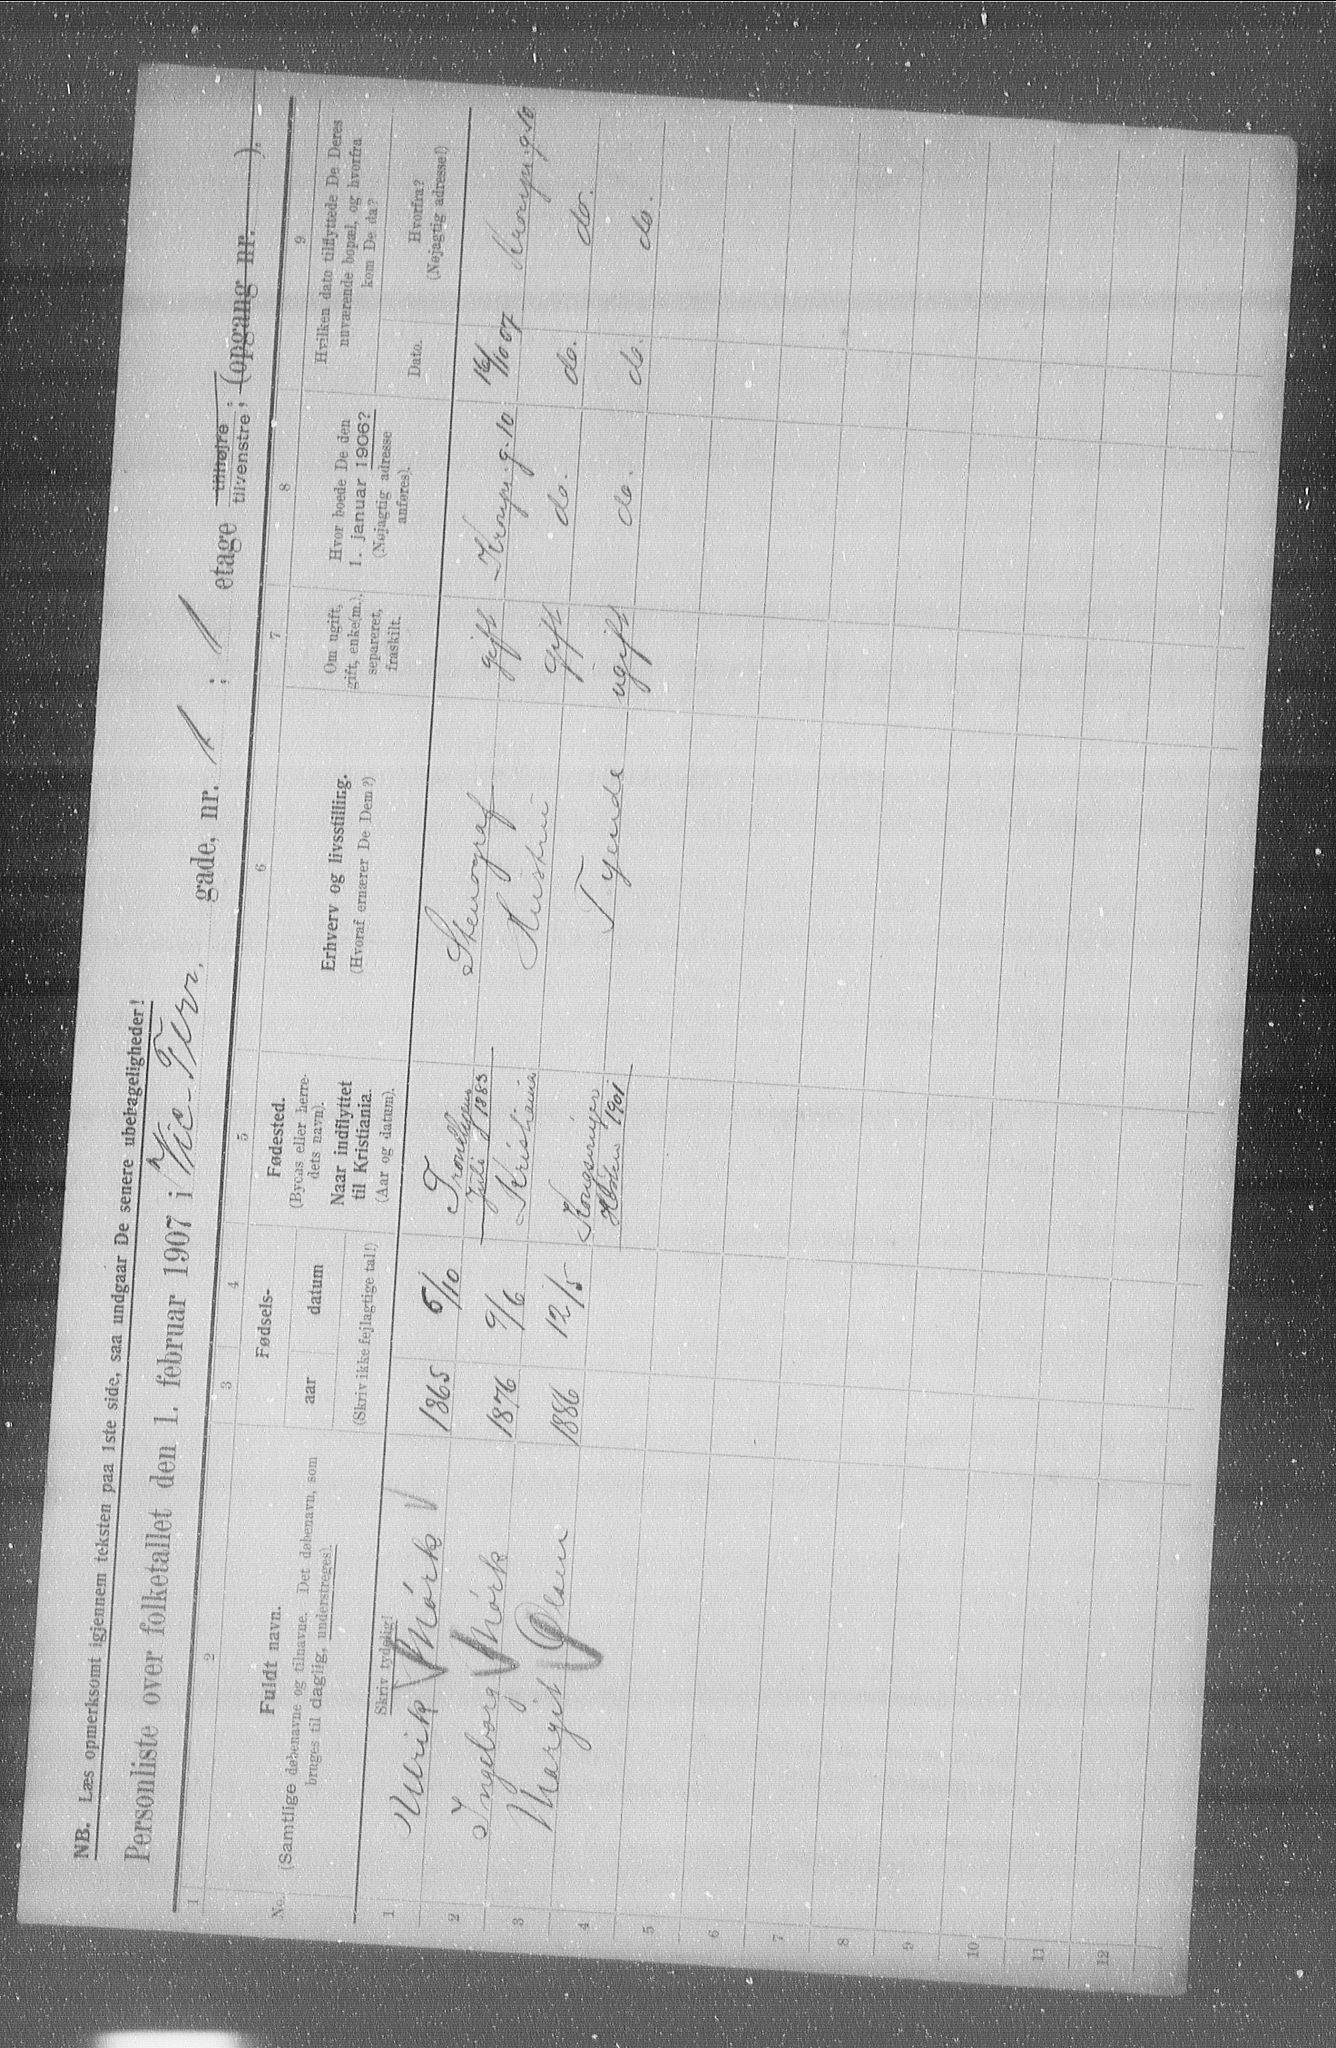 NB. Læs opmerksomt igjennem teksten paa 1ste side, saa undgaar De senere ubehageligheder!
Personliste over folketallet den 1. februar 1907 i Vic. Terr. gade, nr. 1; 1 etage tilhøjre tilvenstre; (opgang nr. ).
1 2 3 4 5 6 7 8 9
No. Fuldt navn.
(Samtlige døbenavne og tilnavne. Det døbenavn, som
bruges til daglig, understreges).
Skriv tydelig!
Fødsels-
aar datum
(Skriv ikke fejlagtige tal!)
Fødested.
(Byens eller herre-
dets navn).
Naar indflyttet
til Kristiania.
(Aar og datum).
Erhverv og livsstilling.
(Hvoraf ernærer De Dem?)
Om ugift,
gift, enke(m.),
separeret,
fraskilt.
Hvor boede De den
1. januar 1906?
(Nøjagtig adresse
anføres).
Hvilken dato tilflyttede De Deres
nuværende bopæl, og hvorfra
kom De da?
Dato. Hvorfra?
(Nøjagtig adresse!)
1 Ulrik Mørk 1865 5/10 Trondhjem Juli 1883 Stenograf gift Kronpr.g. 10 16/10 07 Kronpr.g. 10
2 Ingeborg Mørk 1876 9/6 Kristiania Hustru gift do. do. do.
3 Margit Olsen 1886 12/5 Kongsvinger 1901 Tyende ugift do. do. do.
4
5
6
7
8
9
10
11
12